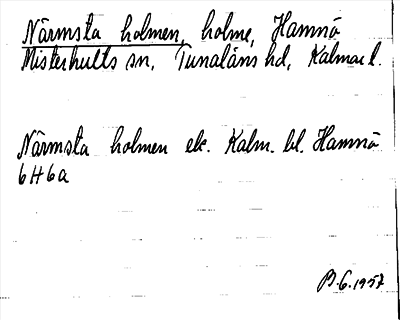 Närmsta holmen, holme, Hamnö
Misterhults sn, Tunaläns hd, Kalmar l.
Närmsta holmen ek. Kalm. bl. Hamnö
6H6a
B.6.1957